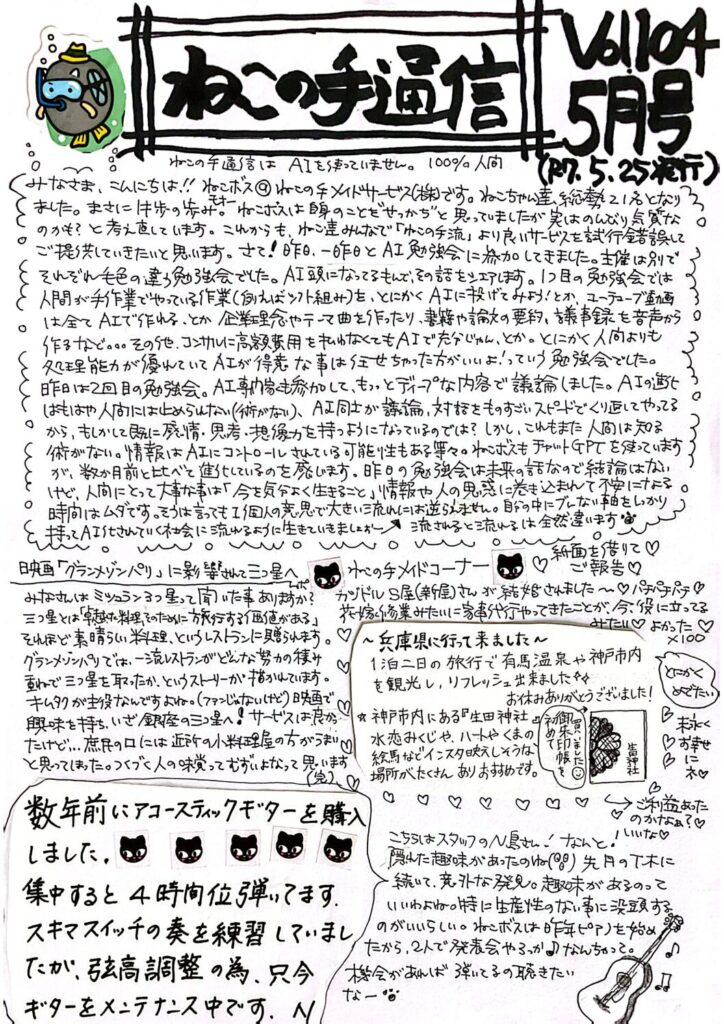 ねこの手通信
Vol.104
5月号
(R7.5.25発行)
ねこの手通信は AIを使っていません。100%人間
みなさま、こんにちは!! ねこボス ねこの手メイドサービス(株)です。ねこちゃん達、総勢21名となり
ました。まさに牛歩の歩み。ねこボスは自身のことを“せっかち”と思っていましたが実はのんびり気質な
のかも?と考え直しています。これからも、ねこ達みんなで「ねこの手流」より良いサービスを試行錯誤して
ご提供していきたいと思います。さて!昨日、一昨日とAI勉強会に添加してきました。主催は別で
それぞれ毛色の違う勉強会でした。AI頭になってるもんで、その話をシェアします。1つ目の勉強会では
人間が手作業でやっている作業(例えばシフト組み)を、とにかくAIに投げてみよう!とか、ユーチューブ動画
は全てAIで作れる、とか 企業理念やテーマ曲を作ったり、書籍や論文の要約、議事録を音声から
作るなど。。。その他、コンサルに高額費用を払わなくてもAIで充分じゃん、とか。とにかく人間よりも
処理能力が優れていてAIが得意な事は任せちゃった方がいいよ!っていう勉強会でした。
昨日は2回目の勉強会。AI専門家も参加して、もっとディープな内容で議論しました。AIの進化
はもはや人間には止められない(術がない)、AI同士が議論、対話をものすごいスピードでくり返してやってる
から、もしかして既に感情・思考・想像力を持つようになっているのでは?しかし、これもまた人間は知る
術がない。情報はAIにコントロールされている可能性もある等々。ねこボスもチャットGPTを使っています
が、数か月前と比べても進化しているのを感じます。昨日の勉強会は未来の話なので結論はない
けど、人間にとって大事な事は「今を気分よく生きること」情報や人の思惑に巻き込まれて不安になる
時間はムダです。そうは言っても1個人の意思で大きい流れには逆らえません。自分の中にブレない軸をしっかり
持ってAI化されていく社会に流れるように生きていきましょおー 流されると流れるは全然違います
映画「グランメゾンパリ」に影響されて三つ星へ
みなさんはミシュラン3つ星って聞いた事ありますか?
三つ星とは「卓越した料理、そのために旅行する価値がある」
それほど素晴らしい料理、というレストランに贈られます。
グランメゾンパリでは、一流レストランがどんな努力の積み
重ねで三つ星を取ったか、というストーリーが描かれています。
キムタクが主役なんですよね。(ファンじゃないけど)映画で
興味を持ち、いざ!銀座の三つ星へ!サービスは良かっ
たけど…庶民の口には近所の小料理屋の方がうまい
と思ってしまった。つくづく人の味覚ってむずいよなって思います
(完)
ねこの手メイドコーナー
紙面を借りて
ご報告
S屋(新屋)さんが結婚されました～ パチパチパチ
花嫁修業みたいに家事代行やってきたことが、今、役に立ってる
みたい よかった
×100
とにかく
めでたい
末永く
お幸せ
にネ
～兵庫県に行って来ました～
1泊二日の旅行で有馬温泉や神戸市内
を観光し、リフレッシュ出来ました
お休みありがとうございました!
☆神戸市内にある『生田神社』
水恋みくじや、ハートやくまの
絵馬などインスタ映えしそうな
場所がたくさんあり おすすめです。
初めて
御朱印帳を
買いました
生田神社
ご利益あった
のかなぁ?
いいな
数年前にアコースティックギターを購入
しました。
集中すると4時間位弾いてます。
スキマスイッチの奏を練習していまし
たが、弦高調整の為、只今
ギターをメンテナンス中です。 N
こちらはスタッフのN島さん!なんと!
隠れた趣味があったのね 先月のT木に
続いて、意外な発見。趣味があるのって
いいわよね。特に生産性のない事に没頭する
のがいいらしい。ねこボスは昨年ピアノを始め
たから、2人で発表会やろっか♪なんちゃって。
機会があれば弾いてるの聴きたい
なー